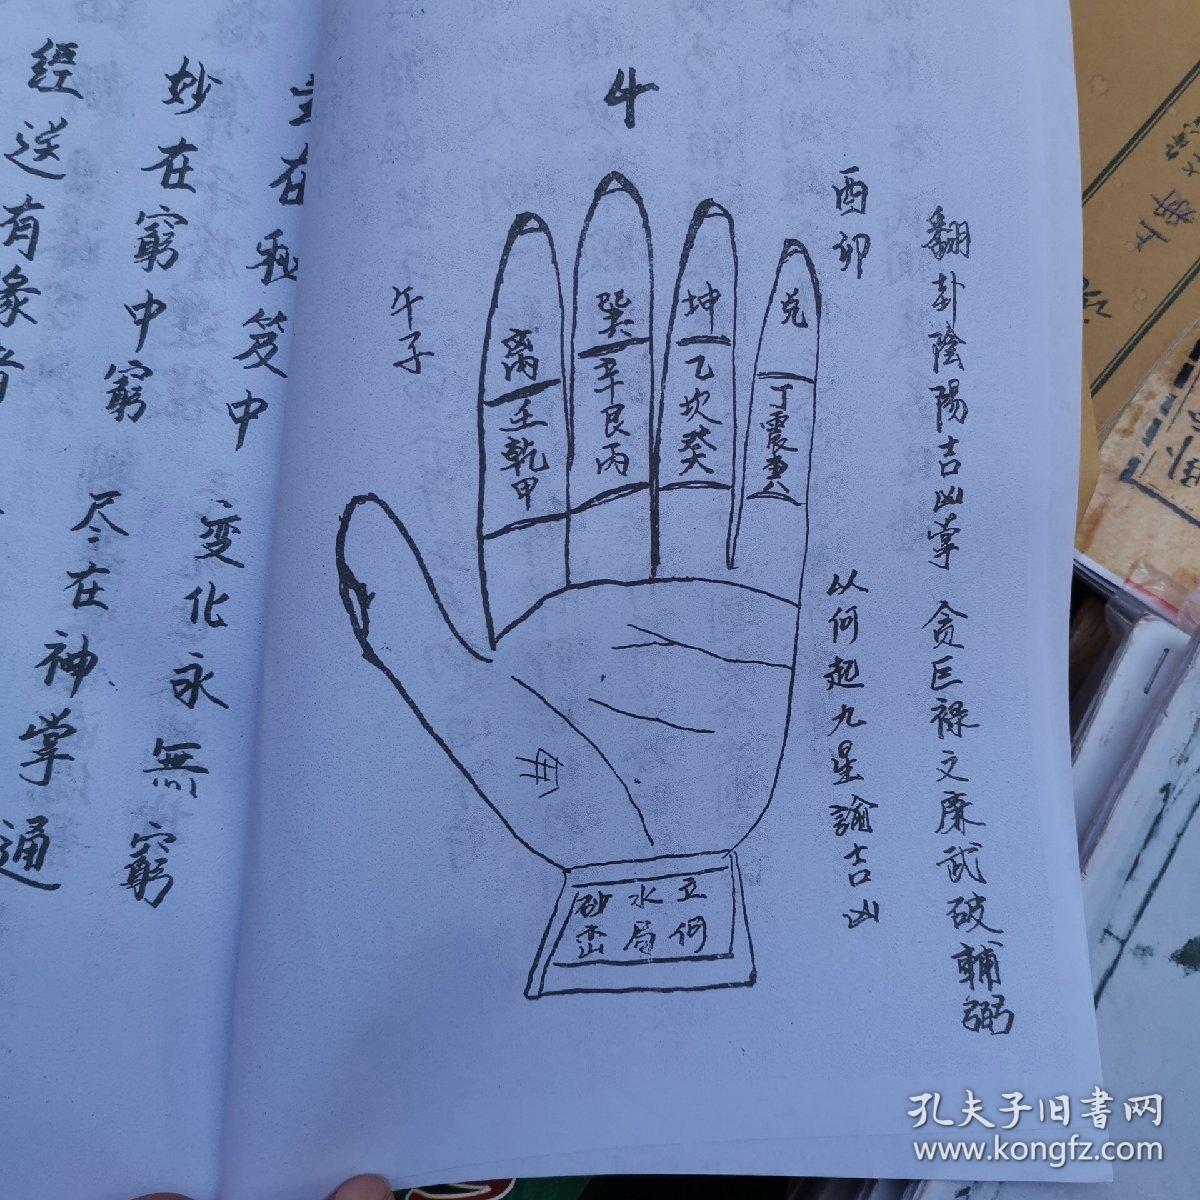 翻卦陰陽吉凶掌 贪巨祿文廉武破輔弼
以何起九星諭吉凶
酉卯
斗
午子
离
壬乾甲
巽
辛艮丙
坤
乙坎癸
兑
丁震
立何
水局
砂峦
在秘笈中 变化永無窮
妙在窮中窮 尽在神掌
經送有緣者
通
孔夫子旧書网
www.kongfz.com